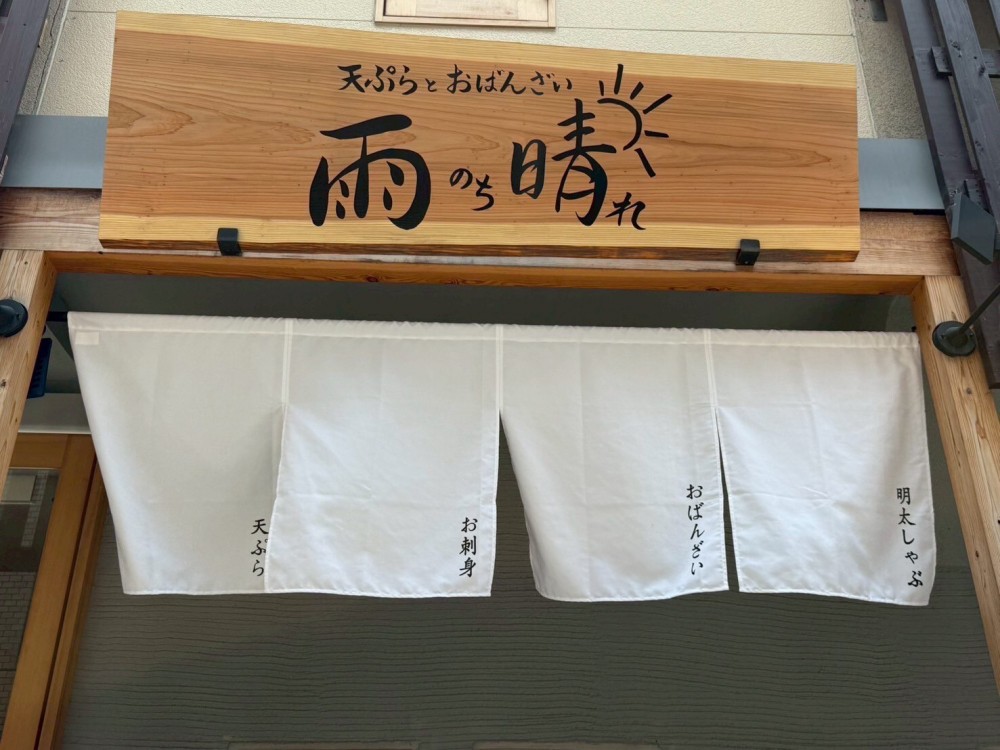 天ぷらとおばんざい
雨のち晴れ
明太しゃぶ
おばんざい
お刺身
天ぷら